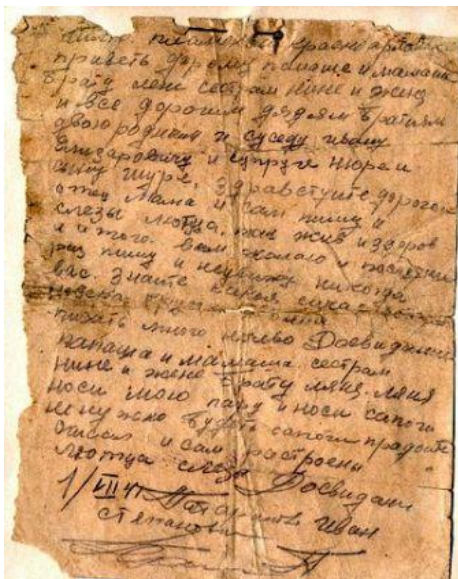 Пишю пламеный красноармейский
приветь дорогому папаше и мамаши
брату лёне сестрам нине и жене
и все дорогим дядям братиям
двоюродным и суседу ивану
и супруге нюре и
сыну шуре. Здравствуйте дорогое
отец мама и сам пишу и
слезы лютца, так жив и здоров
и того. вам желаю и последние
раз пишу и невижу никогда
вас. Знайте какая сичас
писать много нечево Досвидания
папаша и мамаша сестрам
нине и жене брату
носи мою пару и носи сапоги
ненужно будет сапоги продайте
писал и сам растроеный
лютца слеза Досвидани
1/VII 41 Иван
степанов